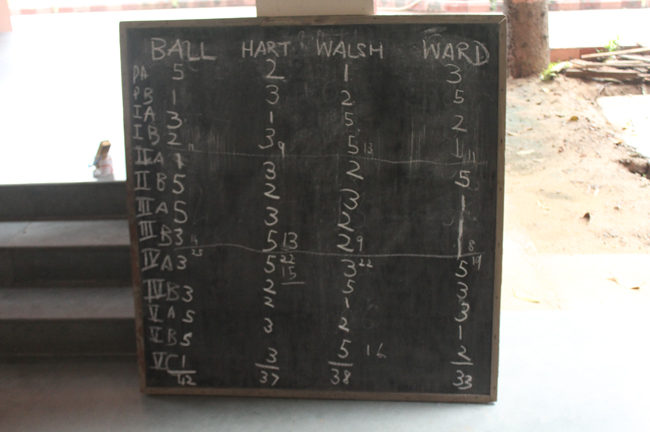 BALL HART WALSH WARD
PA 5 2 1 3
PB 1 3 2 5
IA 3 1 5 2
IB 2 11 3 9 5 13 1 11
IIA 1 3 2 5
IIB 5 2 3 1
IIIA 5 3 2 1
IIIB 3 14 5 13 2 9 1 8
IVA 3 25 5 22 3 22 5 19
15
IVB 3 2 5 3
VA 5 2 1 3
VB 5 3 2 1
VC 1 3 5 16 2
42 37 38 33